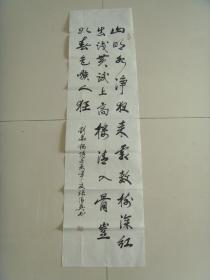 山明水净夜来霜数树深红
出浅黄试上高楼清入骨岂
如春色嗾人狂
刘禹锡